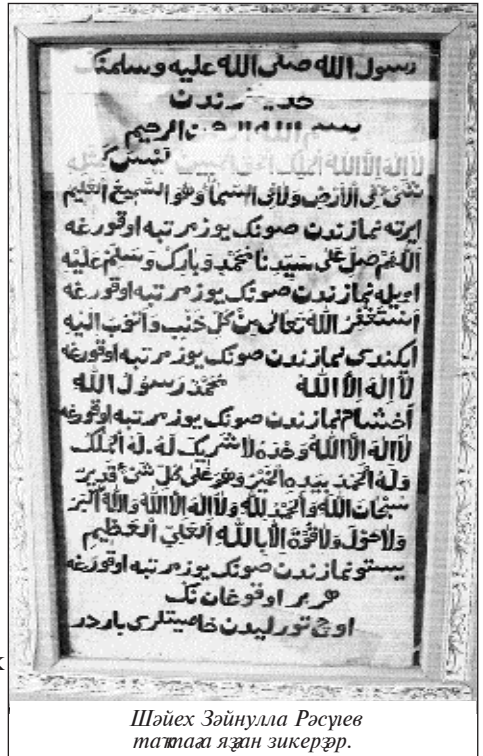 رسول الله صلى الله عليه وسلمنك
حديثرندن
بسم الله الرحمن الرحيم
شئ فى الارض ولا فى السماء وهو السميع العليم
ايرته نمازندن صونك يوز مرتبه اوقورغه
اللهم صل على سيدنا محمد وبارك وسلم عليه
اويله نمازندن صونك يوز مرتبه اوقورغه
استغفر الله تعالى من كل ذنب واتوب اليه
ايكندى نمازندن صونك يوز مرتبه اوقورغه
لا اله الا الله محمد رسول الله
اخشام نمازندن صونك يوز مرتبه اوقورغه
لا اله الا الله وحده لا شريك له. له الملك
وله الحمد بيده الخير وهو على كل شئ قدير
سبحان الله والحمد لله ولا اله الا الله والله اكبر
ولا حول ولا قوة الا بالله العلي العظيم
يستو نمازندن صونك يوز مرتبه اوقورغه
هر بر اوقوغان نك
اوچ تورليدن خاصيتلرى باردر
Шәйех Зәйнулла Рәсүлев
яҙған зикерҙәр.